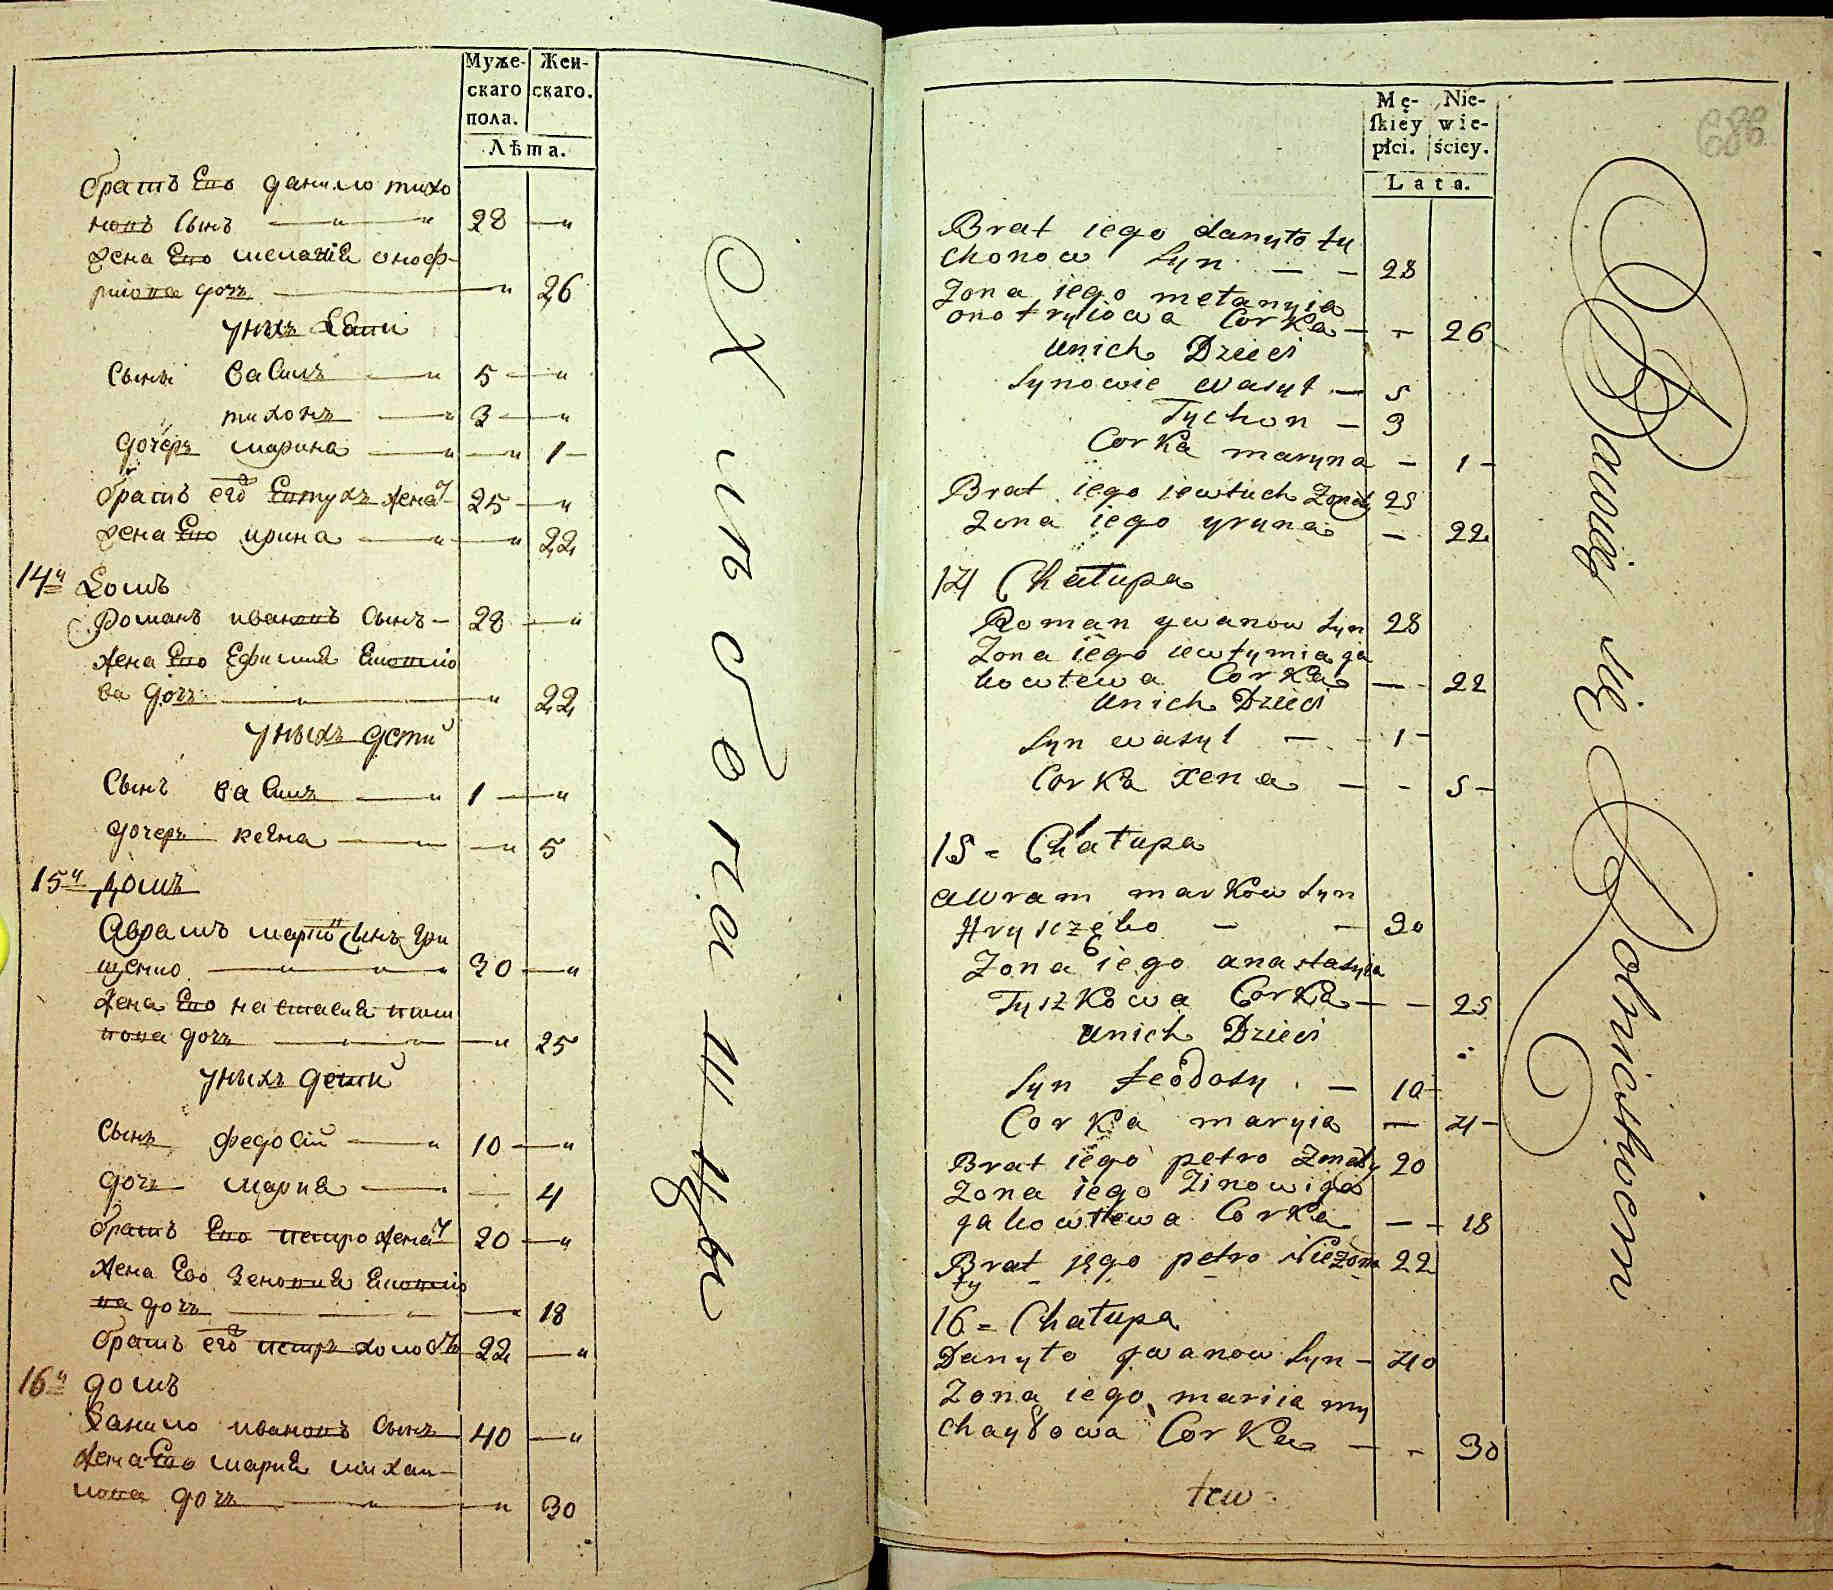 Муже- Жен-
скаго скаго.
пола.
Лѣта.
братъ Его данило тихо
новъ Сынъ 28
жена Его мелания оноф-
риова дочь 26
уныхъ дѣти
Сыны василь 5
тихонъ 3
дочерь марина 1
братъ его Евтухъ женат 25
жена Его ирина 22
14й Домъ
Романъ ивановъ Сынъ 28
жена Его Ефимия Яковлѣ
ва дочь 22
уныхъ дети
Сынъ василь 1
дочерь ксена 5
15й Домъ
Аврамъ марков Сынъ Гри
щенко 30
жена Его настасия тиш
кова дочь 25
уныхъ дети
Сынъ федосiй 10
дочь мария 4
братъ Его петро женат 20
жена Его Зеновия Яковлѣ
ва дочь 18
братъ его петръ холостъ 22
16й домъ
Данило ивановъ Сынъ 40
жена Его мария михаи-
лова дочь 30
Живоопащцы
Mę- Nie-
skiey wie-
płci. ściey.
Lata.
688
Brat iego danyło ty
chonow Syn 28
Zona iego metanyia
onofryiowa Corka 26
Unich Dzieci
Synowie wasyl 5
Tychon 3
Corka maryna 1
Brat iego iewtuch Zonaty 25
Zona iego yryna 22
14 Chałupa
Roman ywanow Syn 28
Zona iego iewfymia ja
kowlewa Corka 22
Unich Dzieci
Syn wasyl 1
Corka xena 5
15 = Chałupa
awram markow Syn
Hryszczęko 30
Zona iego anastasyia
Tyszkowa Corka 25
Unich Dzieci
Syn feodosy 10
Corka maryia 4
Brat iego petro Zonaty 20
Zona iego Zinowiia
jakowlewa Corka 18
Brat jego petro Niezona 22
ty
16 = Chałupa
Danyło ywanow Syn 40
Zona iego mariia my
chayłowa Corka 30
tew
Bawią się Rolnictwem